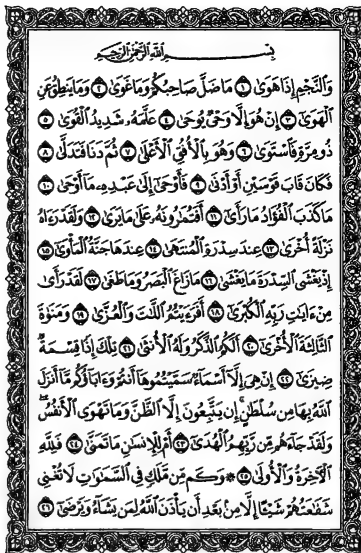 بِسْمِ اللَّهِ الرَّحْمَٰنِ الرَّحِيمِ
وَالنَّجْمِ إِذَا هَوَىٰ ١ مَا ضَلَّ صَاحِبُكُمْ وَمَا غَوَىٰ ٢ وَمَا يَنطِقُ عَنِ
الْهَوَىٰ ٣ إِنْ هُوَ إِلَّا وَحْيٌ يُوحَىٰ ٤ عَلَّمَهُ شَدِيدُ الْقُوَىٰ ٥
ذُو مِرَّةٍ فَاسْتَوَىٰ ٦ وَهُوَ بِالْأُفُقِ الْأَعْلَىٰ ٧ ثُمَّ دَنَا فَتَدَلَّىٰ ٨
فَكَانَ قَابَ قَوْسَيْنِ أَوْ أَدْنَىٰ ٩ فَأَوْحَىٰ إِلَىٰ عَبْدِهِ مَا أَوْحَىٰ ١٠
مَا كَذَبَ الْفُؤَادُ مَا رَأَىٰ ١١ أَفَتُمَارُونَهُ عَلَىٰ مَا يَرَىٰ ١٢ وَلَقَدْ رَآهُ
نَزْلَةً أُخْرَىٰ ١٣ عِندَ سِدْرَةِ الْمُنتَهَىٰ ١٤ عِندَهَا جَنَّةُ الْمَأْوَىٰ ١٥
إِذْ يَغْشَى السِّدْرَةَ مَا يَغْشَىٰ ١٦ مَا زَاغَ الْبَصَرُ وَمَا طَغَىٰ ١٧ لَقَدْ رَأَىٰ
مِنْ آيَاتِ رَبِّهِ الْكُبْرَىٰ ١٨ أَفَرَأَيْتُمُ اللَّاتَ وَالْعُزَّىٰ ١٩ وَمَنَاةَ
الثَّالِثَةَ الْأُخْرَىٰ ٢٠ أَلَكُمُ الذَّكَرُ وَلَهُ الْأُنثَىٰ ٢١ تِلْكَ إِذًا قِسْمَةٌ
ضِيزَىٰ ٢٢ إِنْ هِيَ إِلَّا أَسْمَاءٌ سَمَّيْتُمُوهَا أَنتُمْ وَآبَاؤُكُم مَّا أَنزَلَ
اللَّهُ بِهَا مِن سُلْطَانٍ إِن يَتَّبِعُونَ إِلَّا الظَّنَّ وَمَا تَهْوَى الْأَنفُسُ
وَلَقَدْ جَاءَهُم مِّن رَّبِّهِمُ الْهُدَىٰ ٢٣ أَمْ لِلْإِنسَانِ مَا تَمَنَّىٰ ٢٤ فَلِلَّهِ
الْآخِرَةُ وَالْأُولَىٰ ٢٥ ۞ وَكَم مِّن مَّلَكٍ فِي السَّمَاوَاتِ لَا تُغْنِي
شَفَاعَتُهُمْ شَيْئًا إِلَّا مِن بَعْدِ أَن يَأْذَنَ اللَّهُ لِمَن يَشَاءُ وَيَرْضَىٰ ٢٦